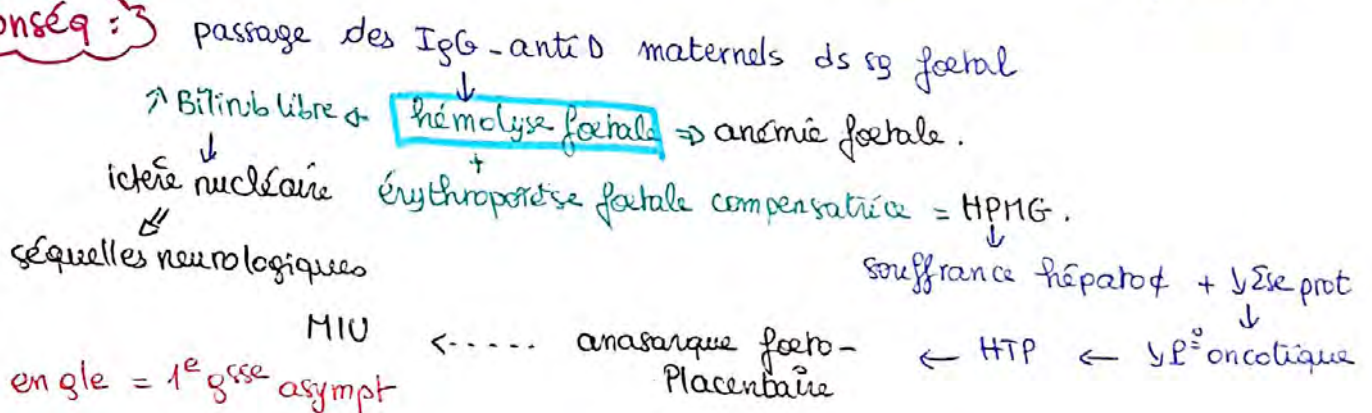 onséq : passage des IgG-anti D maternels ds sg foetal
↗ Bilirub libre ← hémolyse foetale ⇒ anémie foetale.
ictère nucléaire érythropoïèse foetale compensatrice = HPMG.
séquelles neurologiques souffrance hépatoȼ + ↘Σse prot
MIU <..... anasarque foeto- ← HTP ← ↘P° oncotique
Placentaire
en gle = 1e gsse asympt